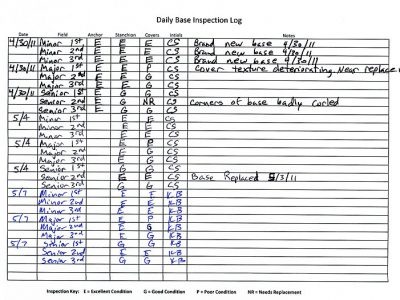 Daily Base Inspection Log
Date Field Anchor Stanchion Covers Initials Notes
4/30/11 Minor 1st E E E CS Brand new base 4/30/11
Minor 2nd E E E CS Brand new base 4/30/11
Minor 3rd E E E CS Brand new base 4/30/11
4/30/11 Major 1st E E P CS Cover texture deteriorating. Near replace
Major 2nd E E G CS
Major 3rd E E G CS
4/30/11 Senior 1st E G G CS
Senior 2nd E G NR CS Corners of base badly
Senior 3rd E G G CS
5/4 Minor 1st E E CS
Minor 2nd E E CS
Minor 3rd E E CS
5/4 Major 1st E P CS
Major 2nd E G CS
Major 3rd E G CS
5/4 Senior 1st G G CS
Senior 2nd E CS Base Replaced 5/3/11
Senior 3rd G G CS
5/7 Minor 1st E E KB
Minor 2nd E E KB
Minor 3rd E E KB
5/7 Major 1st E P KB
Major 2nd E G KB
Major 3rd E G KB
5/7 Senior 1st G G KB
Senior 2nd G E KB
Senior 3rd G G KB
Inspection Key: E = Excellent Condition G = Good Condition P = Poor Condition NR = Needs Replacement